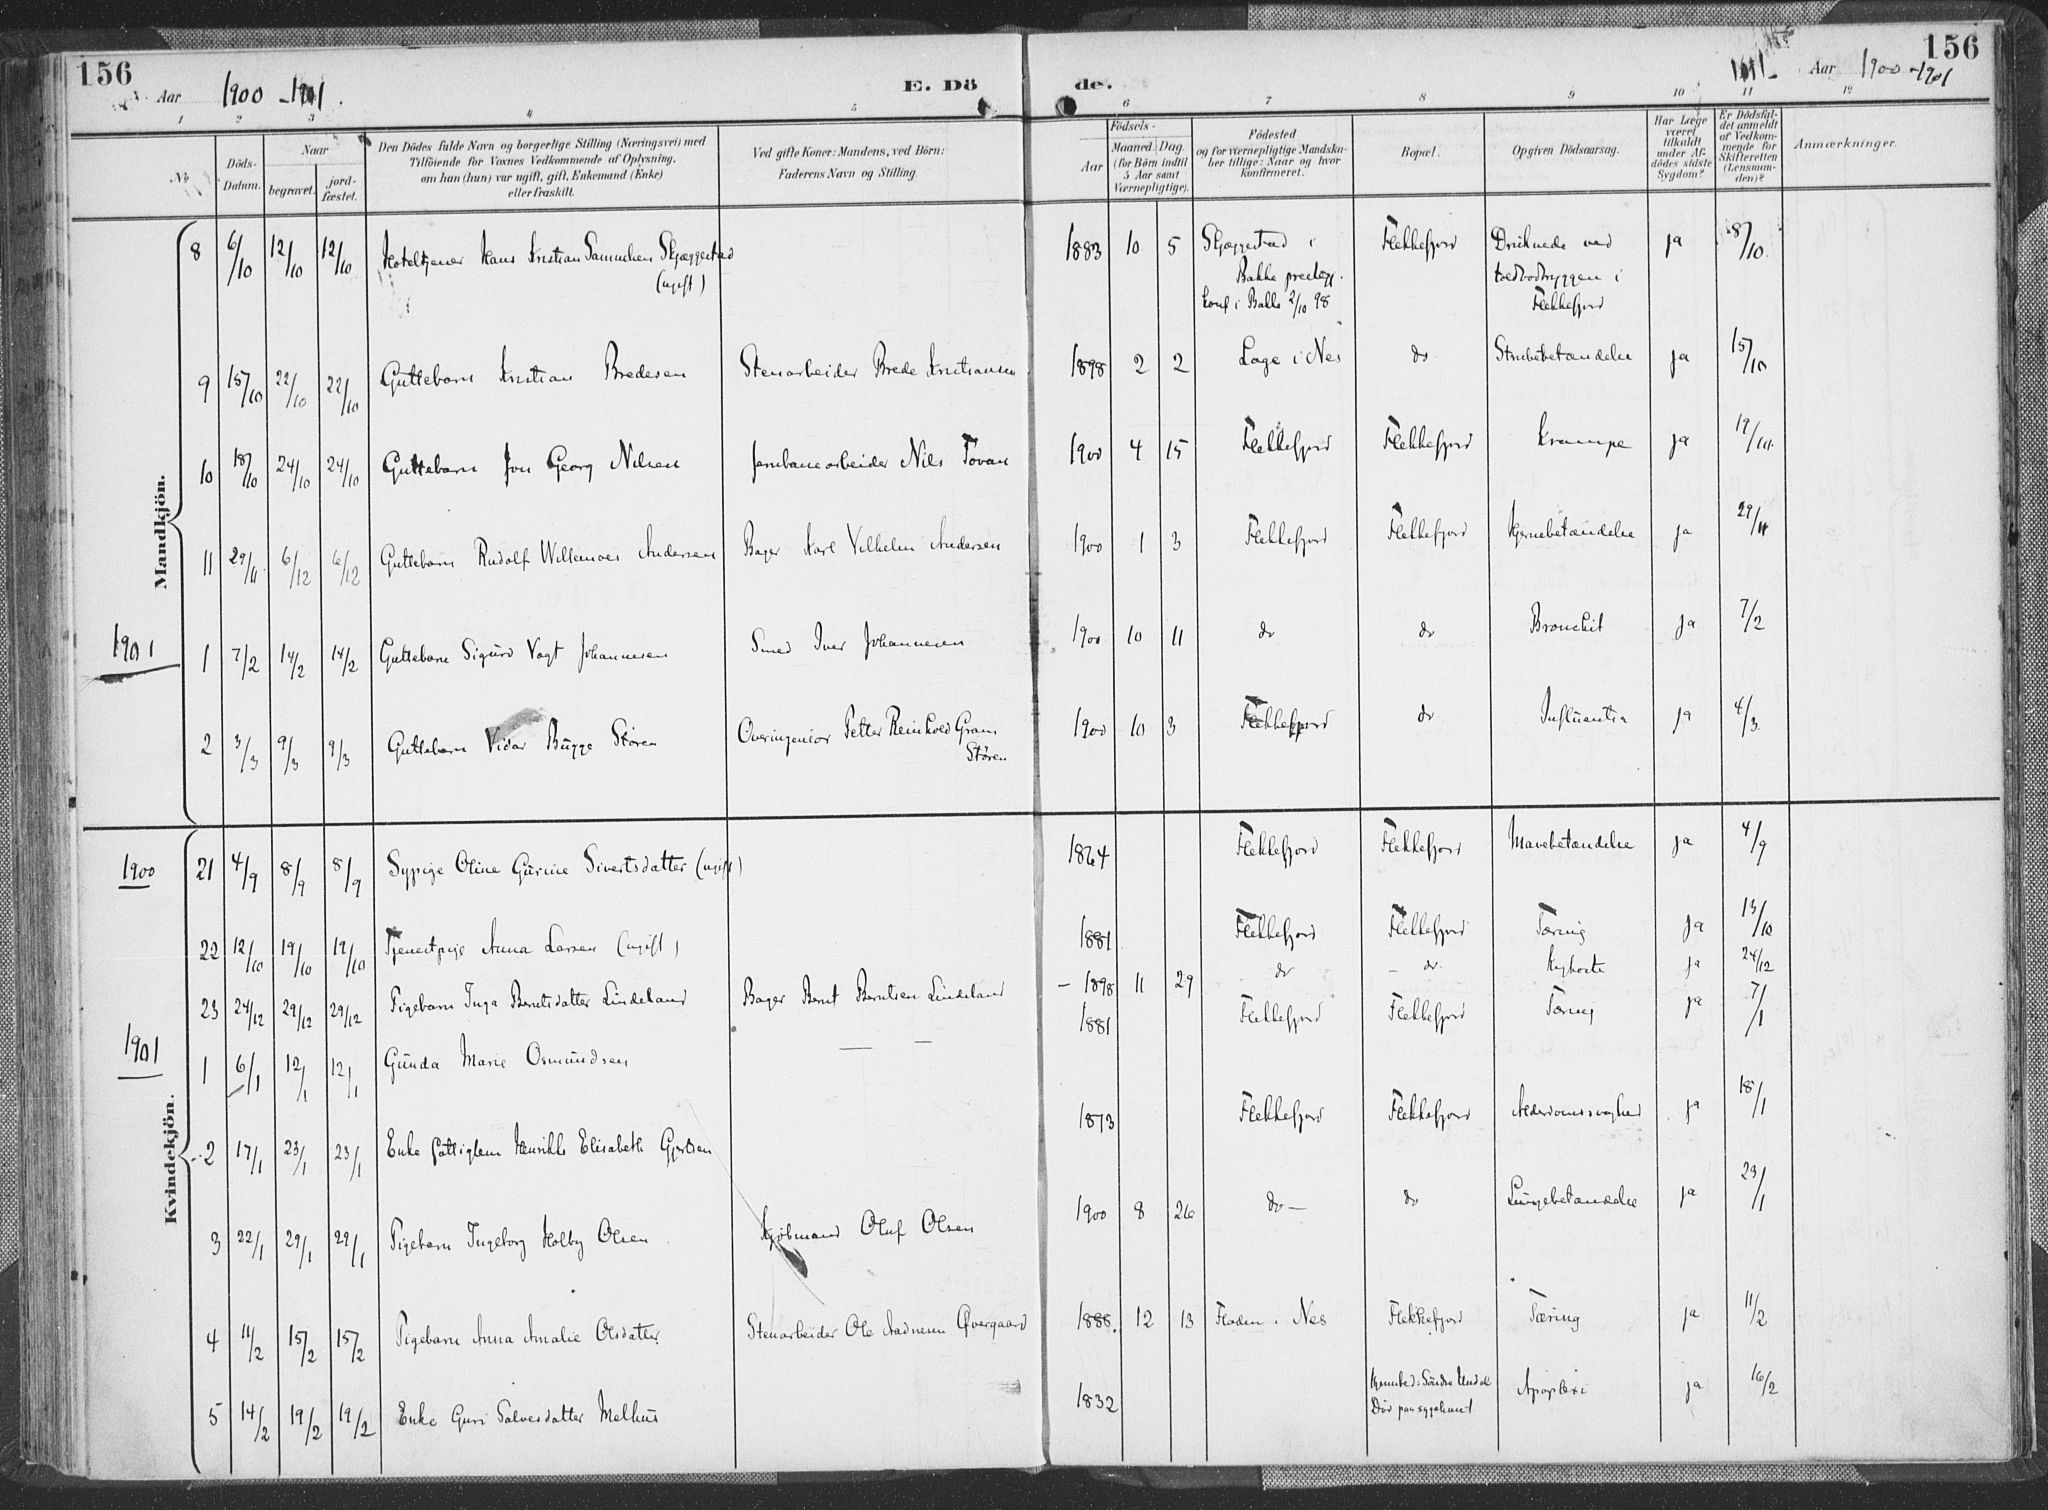 156
156
Aar 1900-1901.
E. Dö
de.
Aar 1900-1901
1 2 3 4 5 6 7 8 9 10 11 12
No
Döds-Datum.
Naar
begravet.
jord-fæstet.
Den Dödes fulde Navn og borgerlige Stilling (Næringsvei) med
Tilföiende for Voxnes Vedkommende af Oplysning,
om han (hun) var ugift, gift, Enkemand (Enke)
eller fraskilt.
Ved gifte Koner: Mandens, ved Börn:
Faderens Navn og Stilling.
Födsels-
Aar
Maaned. Dag.
(for Börn indtil
5 Aar samt
Værnepligtige).
Födested
og for værnepligtige Mandska-
ber tillige: Naar og hvor
konfirmeret.
Bopæl.
Opgiven Dödsaarsag.
Har Læge
været
tilkaldt
under Af-
dödes sidste
Sygdom?
Er Dödsfal-
det anmeldt
af Vedkom-
mende for
Skifteretten
(Lensman-
den)?
Anmærkninger.
Mandkjön.
8 6/10 12/10 12/10 Hoteltjener Hans Kristian Samuelsen Skjæggestad 1883 10 5 Skjæggestad i Flekkefjord Druknede ved ja 8/10.
(ugift) Bakke prestegj. toldbodbryggen i
konf i Bakke 2/10 98 Flekkefjord
9 15/10 22/10 22/10 Guttebarn Kristian Bredesen Stenarbeider Brede Kristiansen 1898 2 2 Loge i Nes do Strubebetændelse ja 15/10
10 18/10 24/10 24/10 Guttebarn Jon Georg Nilsen Jernbanearbeider Nils Tovan 1900 4 15 Flekkefjord Flekkefjord Krampe ja 19/10.
11 29/11. 6/12 6/12 Guttebarn Rudolf Willemoes Andersen Bager Karl Vilhelm Andersen 1900 1 3 Flekkefjord Flekkefjord Hjernebetændelse ja 29/11
1901
1 7/2 14/2 14/2 Guttebarn Sigurd Vogt Johannesen Smed Iver Johannesen 1900 10 11 do do Bronchit ja 7/2
2 3/3 9/3 9/3 Guttebarn Vidar Bugge Støren Overingeniør Petter Reinhold Gram 1900 10 3 Flekkefjord do Influentia ja 4/3
Støren
Kvindekjön.
1900 21 4/9 8/9 8/9 Sypige Oline Gurine Sivertsdatter (ugift) 1864 Flekkefjord Flekkefjord Mavebetændelse ja 4/9
22 12/10 19/10 19/10 Tjenestpige Anna Larsen (ugift) 1881 Flekkefjord Flekkefjord Tæring ja 13/10
23 24/12 29/12 29/12 Pigebarn Inga Berntsdatter Lindeland Bager Bernt Berntsen Lindeland - 1898 11 29 do - do Kighoste ja 24/12
1901
1 6/1 12/1 12/1 Gunda Marie Osmundsen — - 1881 Flekkefjord Flekkefjord Tæring ja 7/1
2 17/1 23/1 23/1 Enke Fattiglem Henrikke Elisabeth Gjertsen 1813 Flekkefjord Flekkefjord Alderdomssvaghed ja 18/1
3 22/1 29/1 29/1 Pigebarn Ingeborg Holby Olsen Kjøbmand Oluf Olsen 1900 8 26 do — do Lungebetændelse ja 23/1
4 11/2 15/2 15/2 Pigebarn Anna Amalie Olsdatter Stenarbeider Ole Aadnesen Øvergaard 1888. 12 13 Floden i Nes Flekkefjord Tæring ja 11/2
5 14/2 19/2 19/2 Enke Guri Salvesdatter Melhus 1832 Hjemsted: Søndre Undal Apoplexi ja 16/2
Død paa sygehuset